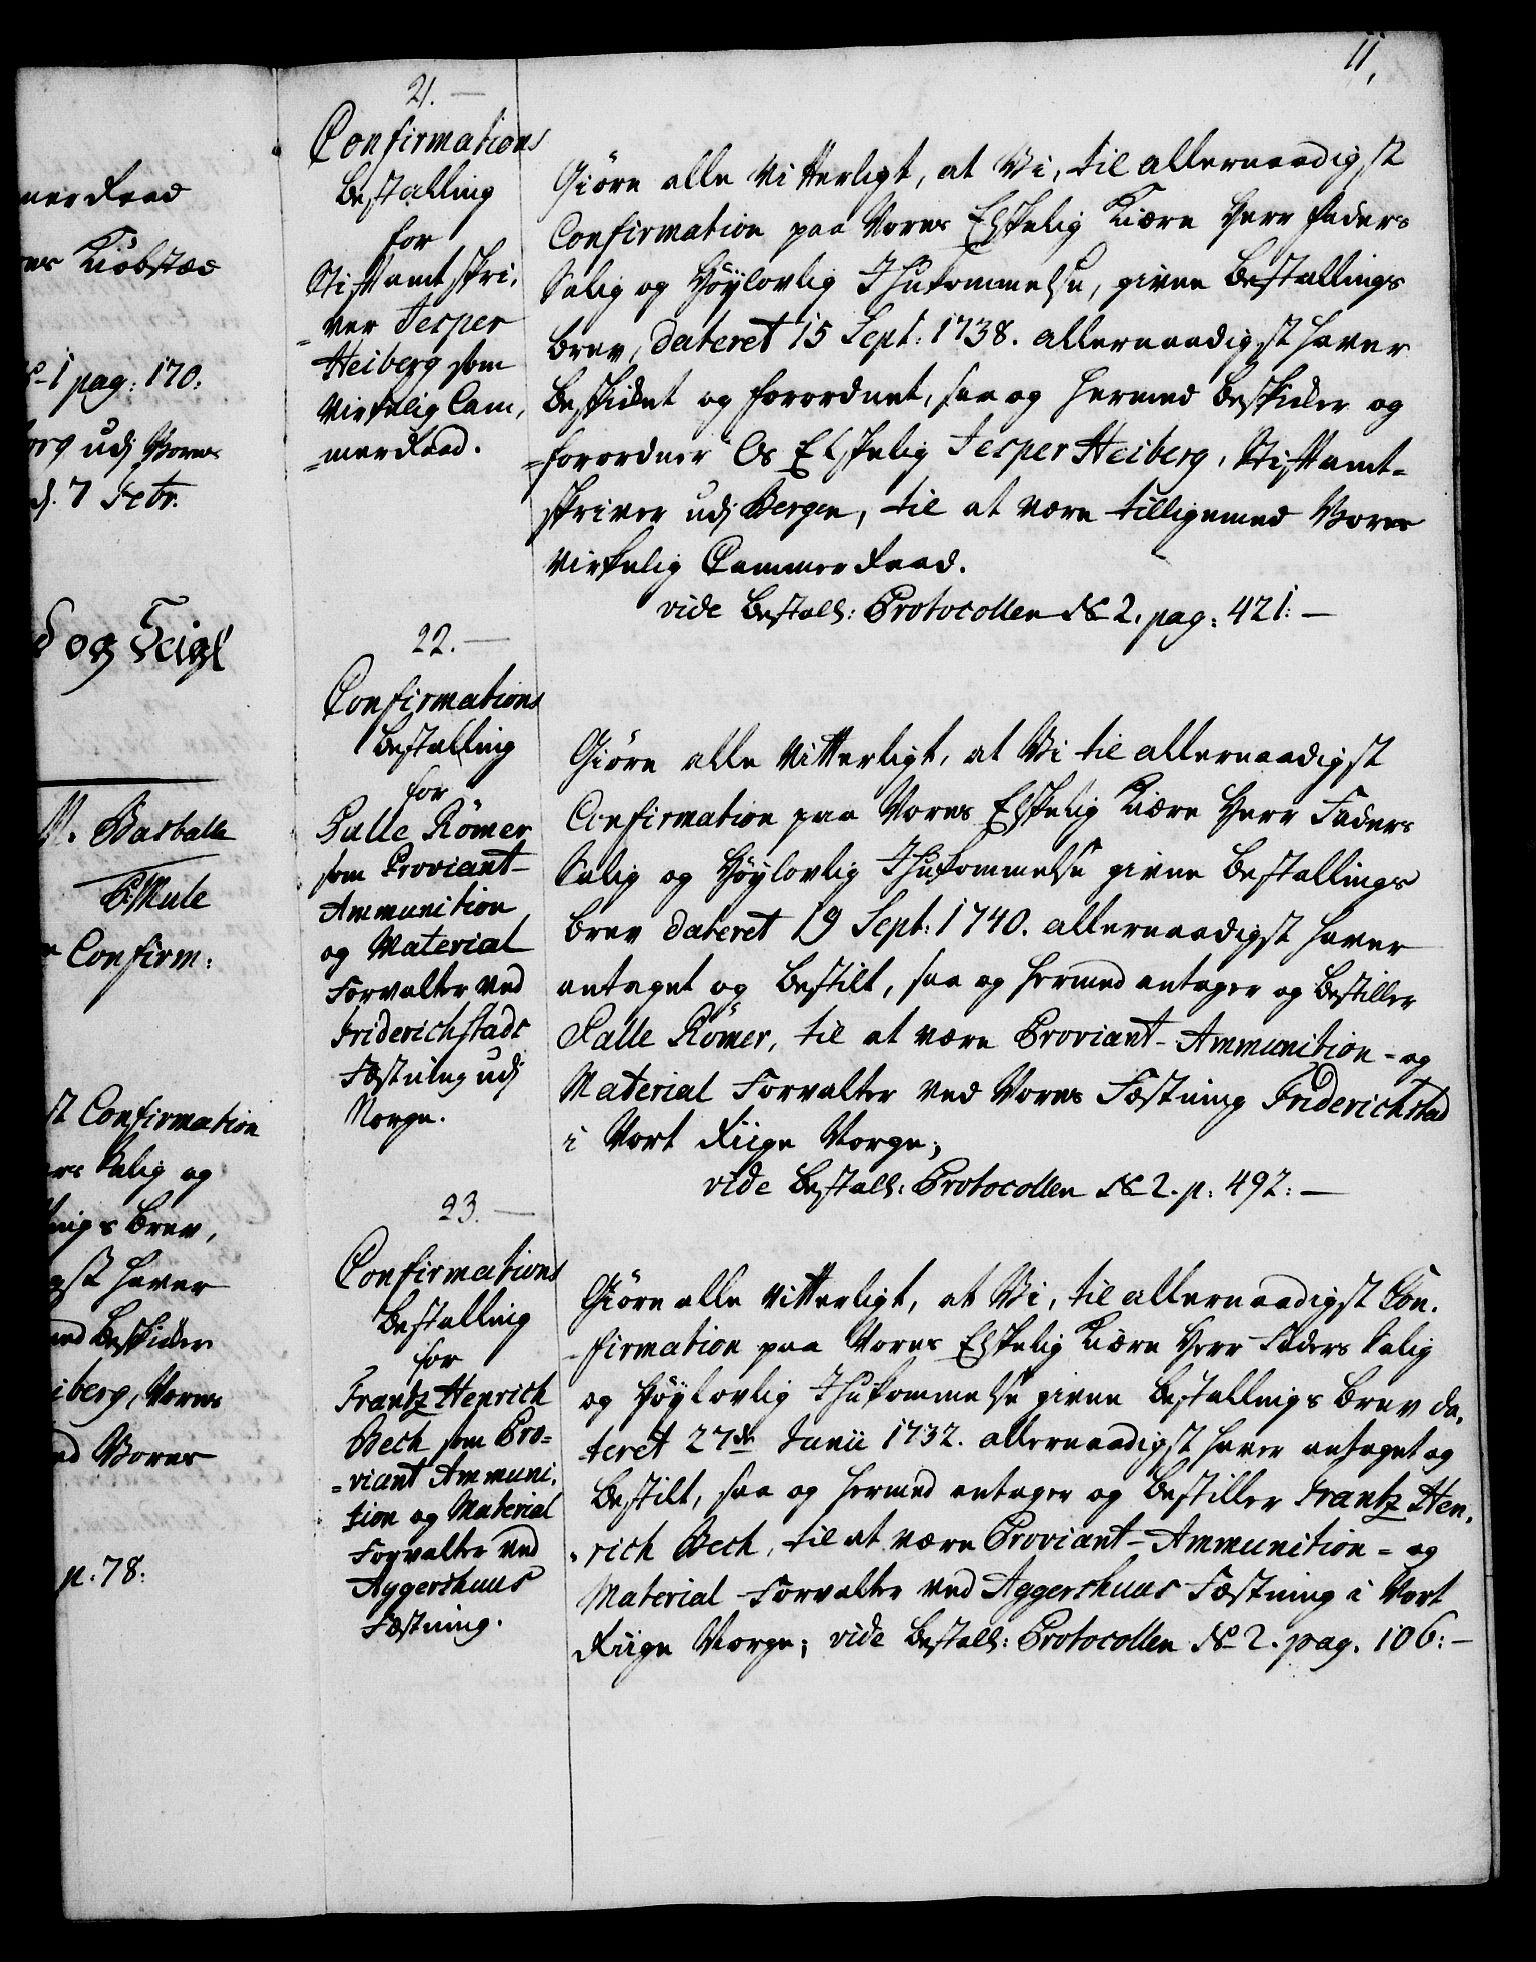 11,
mer Raad
res Kiöbstæd
N-1 pag: 170:
borg udj Vores
d. 7 Febr.
d og Seigl
W. Basballe
P. Mule
Confirm:
st Confirmation
ers Salig og
lings Brev,
gst haver
med beskicker
iberg, Vores
ed Vores
p: 78:
21. —
Confirmations
Bestalling
for
Stiftamtskri-
-ver Jesper
Heiberg som
Virkelig Cam-
=merRaad.
Giöre alle Vitterligt, at Vi, til allernaadigst
Confirmation paa Vores Elskelig Kiære Herr Faders
Salig og Höylovlig Ihukommelse, givne Bestallings
Brev, dateret 15 Sept: 1738. allernaadigst haver
beskicket og forordnet, saa og hermed beskicker og
-forordner Os Elskelig Jesper Heiberg, Stiftamt-
skriver udj Bergen, til at være tilligemed Vores
Virkelig CammerRaad.
vide Bestall: Protocollen No 2. pag: 421: —
22. —
Confirmations
Bestalling
for
Palle Römer
som Proviant-
Ammunition
og Material
Forvalter ved
Friderichstads
Fæstning udj
Norge.
Giöre alle Vitterligt, at Vi til allernaadigst
Confirmation paa Vores Elskelig Kiære Herr Faders
Salig og Höylovlig Ihukommelse givne Bestallings
Brev dateret 19 Sept: 1740. allernaadigst haver
antaget og bestilt, saa og hermed antager og bestiller
Palle Römer, til at være Proviant- Ammunition - og
Material Forvalter ved Vores Fæstning Friderichstad
i Vort Riige Norge;
vide Bestall: Protocollen No 2. p: 492: —
23. —
Confirmations
Bestalling
for
Frantz Henrich
Bech som Pro=
=viant Ammuni-
tion og Material
Forvalter ved
Aggershuus
Fæstning.
Giöre alle Vitterligt, at Vi, til allernaadigst Con-
-firmation paa Vores Elskelig Kiære Herr Faders Salig
og Höylovlig Ihukommelse givne Bestallings Brev da-
teret 27de Junii 1732. allernaadigst haver antaget og
bestilt, saa og hermed antager og bestiller Frantz Hen-
-rich Bech, til at være Proviant- Ammunition = og
Material Forvalter ved Aggershuus Fæstning i Vort
Riige Norge; vide Bestall: Protocollen No 2. pag. 106: —